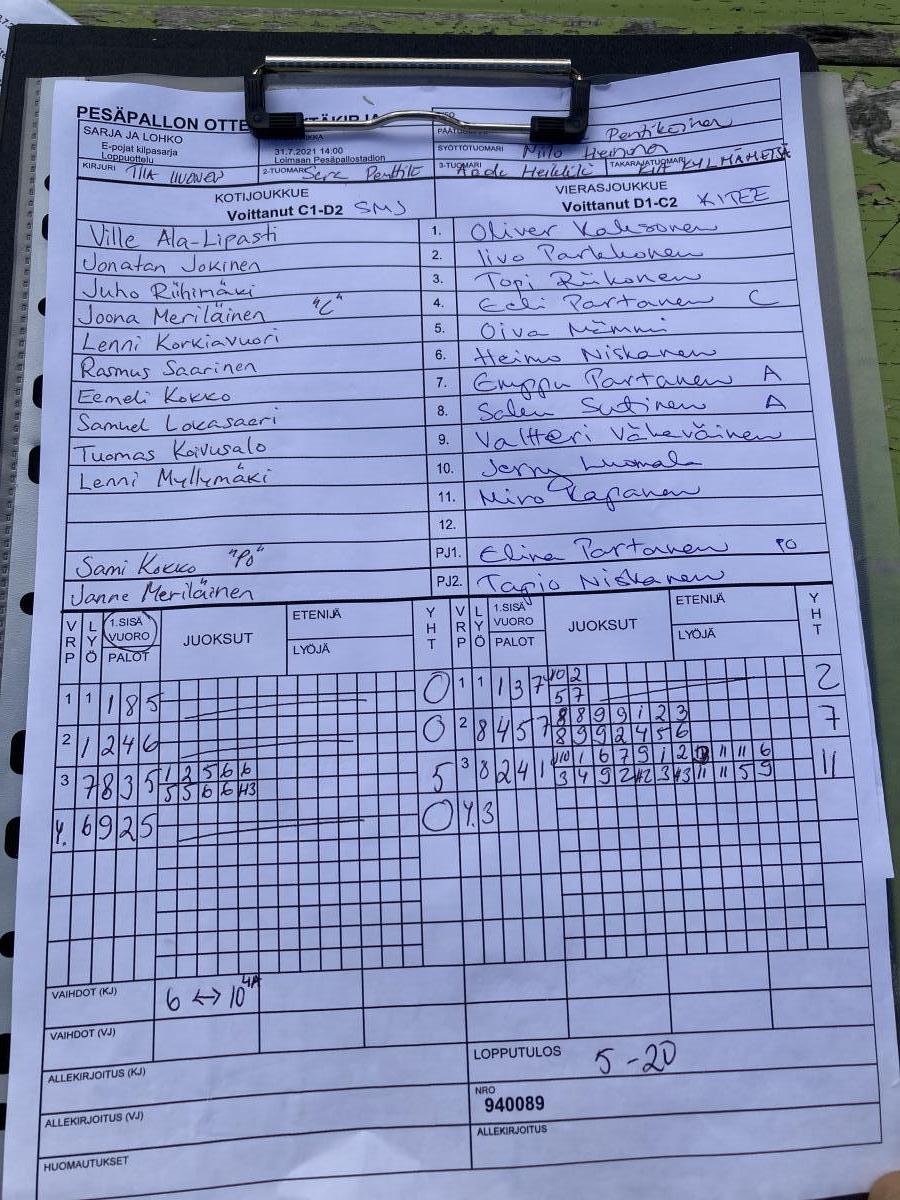 PESÄPALLON OTTE
SARJA JA LOHKO
E-pojat kilpasarja
Loppuottelu
31.7.2021 14:00
Loimaan Pesäpallostadion
Pentikäinen
SYÖTTÖTUOMARI Milo Heinonen
KIRJURI TIIA
2-TUOMARI Penttilä
3-TUOMARI Heikkilä
TAKARAJATUOMARI KYLMÄMETSÄ
KOTIJOUKKUE
Voittanut C1-D2 SMJ
VIERASJOUKKUE
Voittanut D1-C2 KITEE
Ville Ala-Lipasti 1. Oliver Kaksonen
Jonatan Jokinen 2. Iivo Parkkonen
Juho Riihimäki 3. Topi Riikonen
Joona Meriläinen "C" 4. Eeli Partanen C
Lenni Korkiavuori 5. Oiva Nämmi
Rasmus Saarinen 6. Heimo Niskanen
Eemeli Kokko 7. Emppu Partanen A
Samuel Lokasaari 8. Salen Sutinen A
Tuomas Koivusalo 9. Valtteri Väkeväinen
Lenni Myllymäki 10. Jerry Luomala
11. Miro Kapanen
12.
Sami Kokko "PO" PJ1. Elina Partanen PO
Janne Meriläinen PJ2. Tapio Niskanen
VRP LYÖ 1.SISÄ VUORO PALOT JUOKSUT ETENIJÄ LYÖJÄ YHT VRP LYÖ 1.SISÄ VUORO PALOT JUOKSUT ETENIJÄ LYÖJÄ YHT
1 1 1 8 5 0 1 1 1 3 7 10 2 2
5 7
2 1 2 4 6 0 2 8 4 5 7 8 8 9 9 1 2 3 7
8 9 9 2 4 5 6
3 7 8 3 5 1 2 5 6 6 5 3 8 2 4 1 1 6 7 9 1 2 11 11 6 11
5 5 6 6 H3 3 4 9 2 H2 3 H3 11 11 5 9
4. 6 9 2 5 0 4. 3
VAIHDOT (KJ) 6 ↔ 10 4A
VAIHDOT (VJ)
LOPPUTULOS 5-20
ALLEKIRJOITUS (KJ)
NRO
940089
ALLEKIRJOITUS (VJ)
ALLEKIRJOITUS
HUOMAUTUKSET